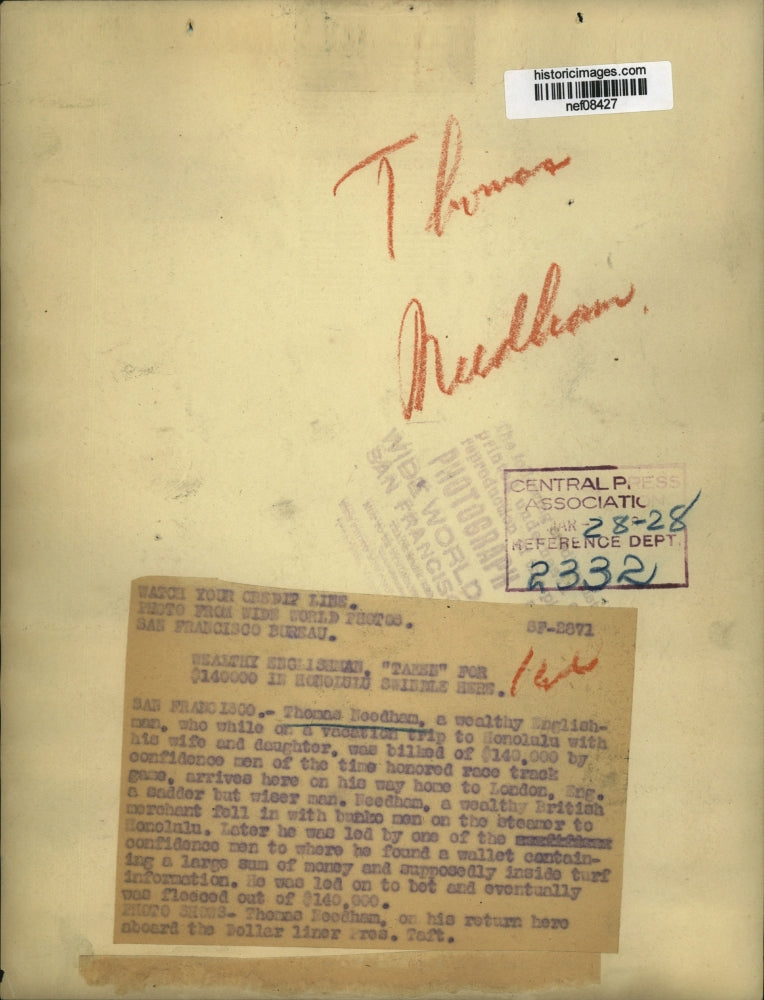 historicimages.com
nef08427
Thomas
Needham.
WIDE WORLD
PHOTOGRAPH
SAN FRANCISC
CENTRAL PRESS
ASSOCIATION
MAR 28-28
REFERENCE DEPT.
2332
WATCH YOUR CREDIT LINE.
PHOTO FROM WIDE WORLD PHOTOS.
SAN FRANCISCO BUREAU.
SF-2671
WEALTHY ENGLISHMAN, "TAKEN" FOR
$140000 IN HONOLULU SWINDLE HERE.
SAN FRANCISCO.- Thomas Needham, a wealthy English-
man, who while on a vacation trip to Honolulu with
his wife and daughter, was bilked of $140,000 by
confidence men of the time honored race track
game, arrives here on his way home to London, Eng.
a sadder but wiser man. Needham, a wealthy British
merchant fell in with bunko men on the steamer to
Honolulu. Later he was led by one of the
confidence men to where he found a wallet contain-
ing a large sum of money and supposedly inside turf
information. He was led on to bet and eventually
was fleeced out of $140,000.
PHOTO SHOWS- Thomas Needham, on his return here
aboard the Dollar liner Pres. Taft.